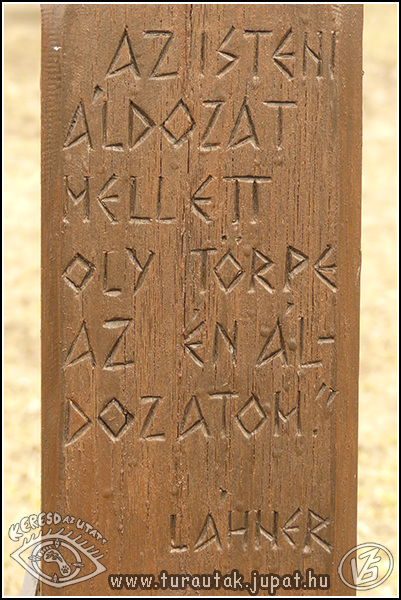 AZ ISTENI
ÁLDOZAT
MELLETT
OLY TÖRPE
AZ ÉN ÁL-
DOZATOM."
LAHNER
KERESD AZ UTAT!
www.turautak.jupat.hu